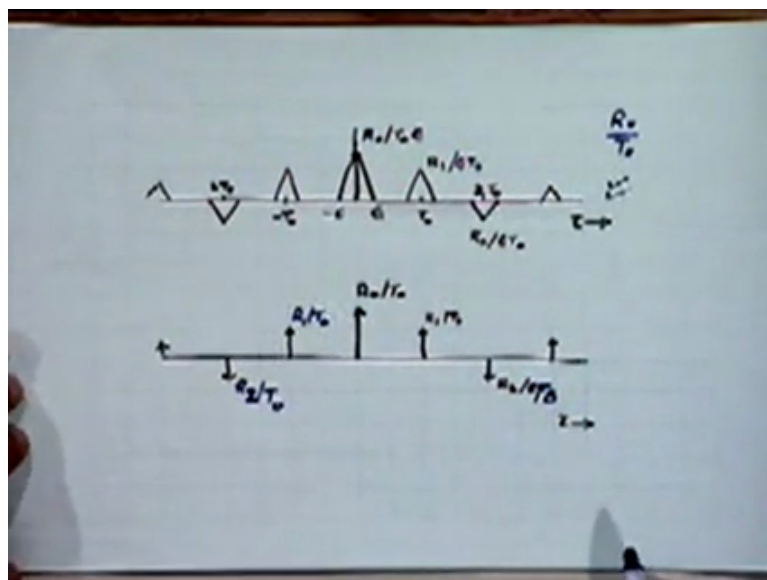 R₀/T₀ ϵ
R₀
T₀
R₁/ϵT₀
2T₀
-T₀
-ϵ
ϵ
T₀
2T₀
τ→
R₀/T₀
R₁/T₀
R₁/T₀
R₂/T₀
τ→